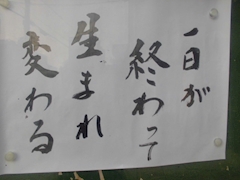 一日が
終わって
生まれ
変わる